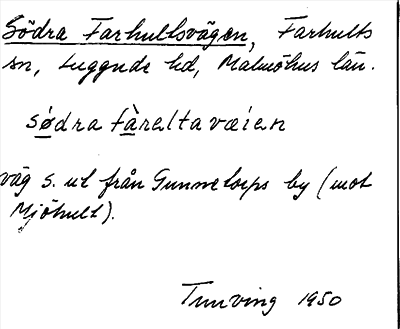 Södra Farhultsvägen, Farhults
sn, Luggude hd, Malmöhus län.
sǿdra fàreltavæien
väg s. ut från Gunnestorps by (mot
Mjöhult).
Tunving 1950